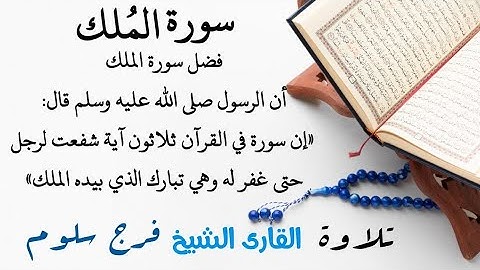 سورة المُلك
فضل سورة الملك
أن الرسول صلى الله عليه وسلم قال:
«إن سورة في القرآن ثلاثون آية شفعت لرجل
حتى غفر له وهي تبارك الذي بيده الملك»
تلاوة القارئ الشيخ فرج سلوم